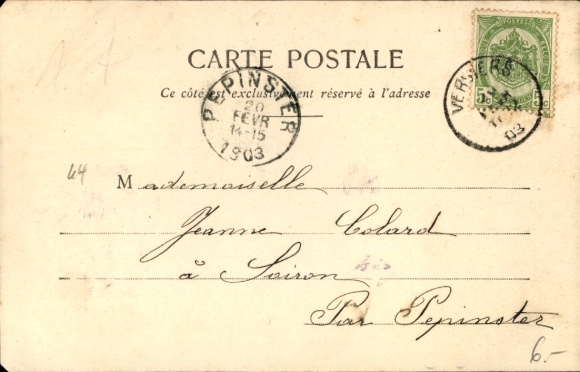 CARTE POSTALE
Ce côté est exclusivement réservé à l'adresse
PEPINSTER
20
FEVR
14-15
1903
POSTES
5c 5c
VERVIERS
03
44
Mademoiselle
Jeanne Colard
à Soiron
Par Pepinster
6.-